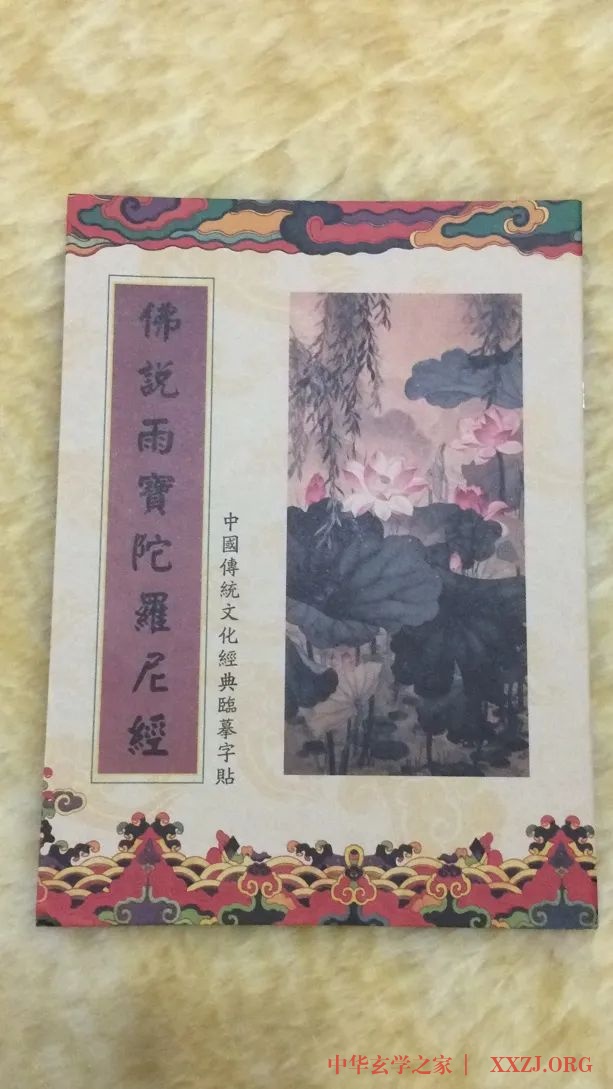 佛說雨寶陀羅尼經
中國傳統文化經典臨摹字貼
中华玄学之家 | XXZJ.ORG